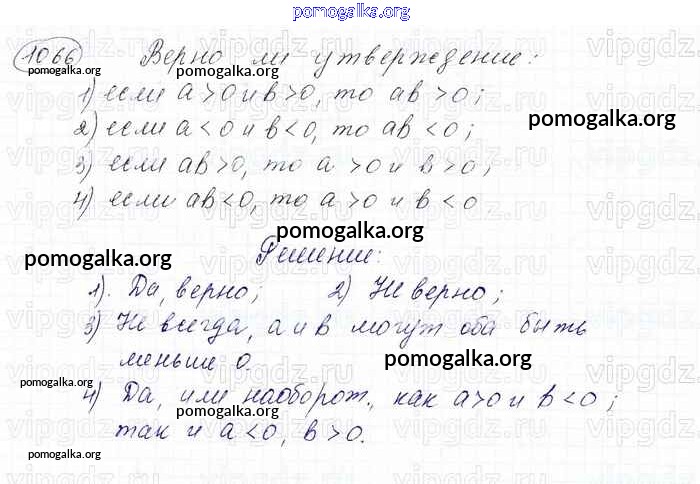 pomogalka.org
1066 Верно ли утверждение:
1) если a > 0 и b > 0, то ab > 0;
2) если a < 0 и b < 0, то ab < 0;
3) если ab > 0, то a > 0 и b > 0;
4) если ab < 0, то a > 0 и b < 0
Решение:
1). Да, верно; 2) Не верно;
3) Не всегда, a и b могут оба быть
меньше 0.
4) Да, или наоборот, как a > 0 и b < 0;
так и a < 0, b > 0.
pomogalka.org
pomogalka.org
pomogalka.org
pomogalka.org
pomogalka.org
pomogalka.org
pomogalka.org
pomogalka.org
pomogalka.org
pomogalka.org
vipgdz.ru